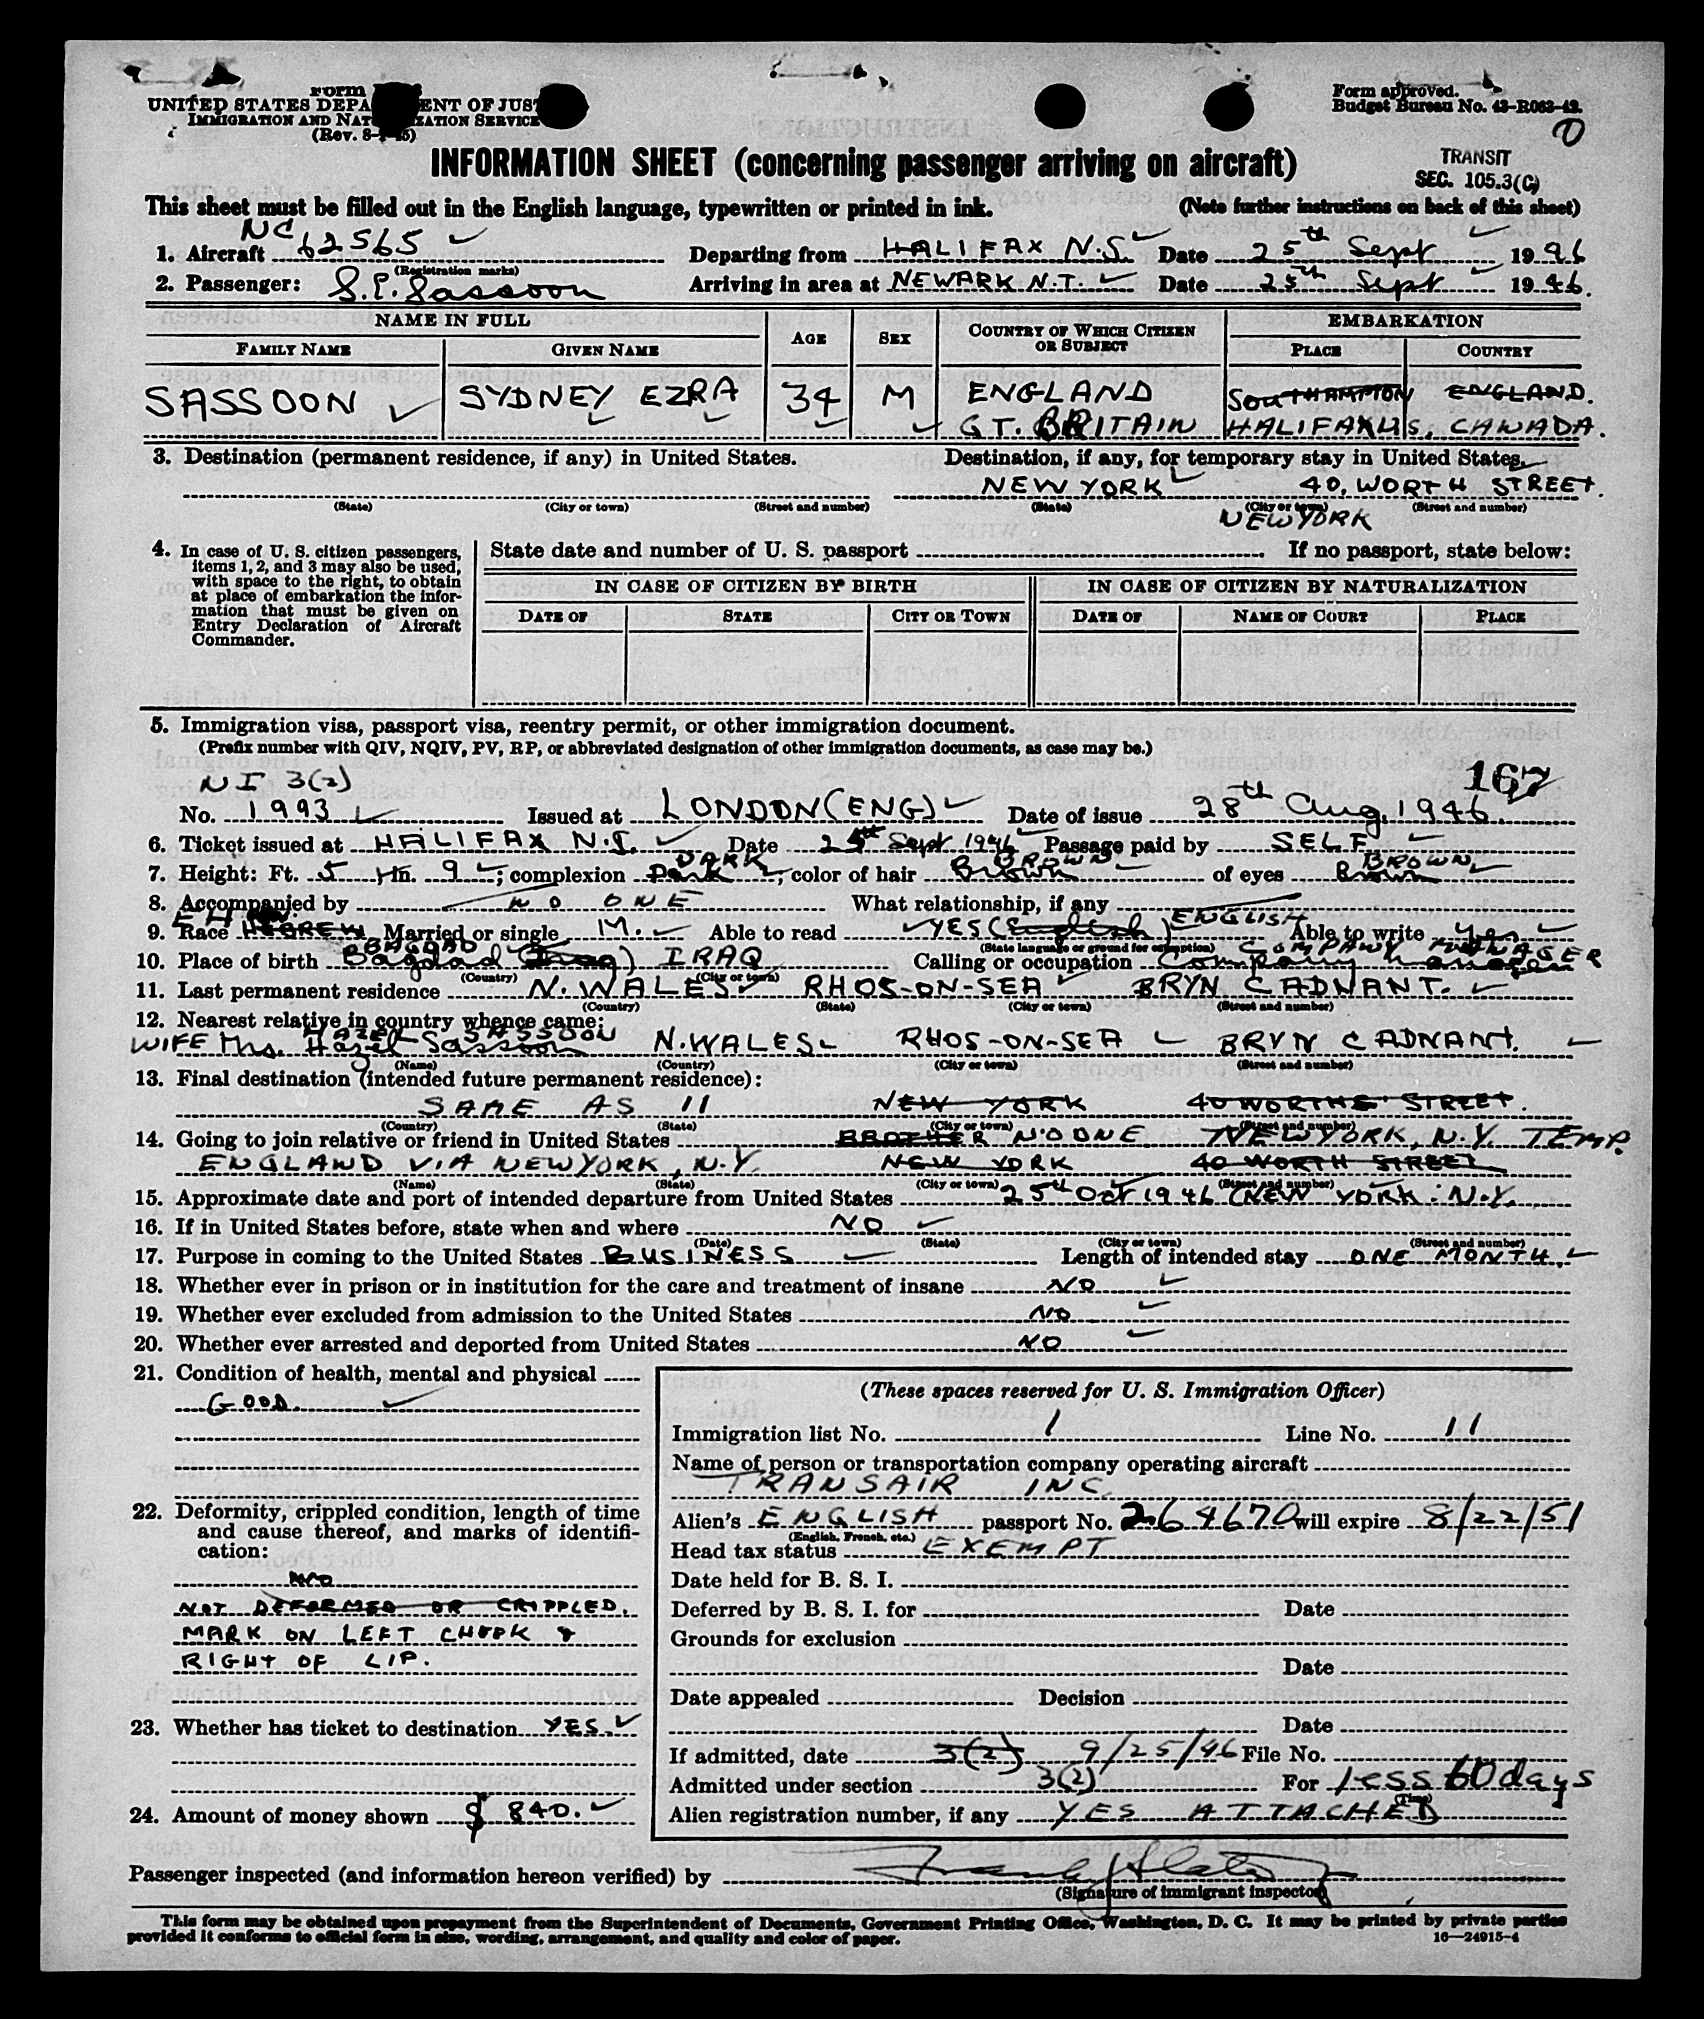 Form
UNITED STATES DEPA ENT OF JUST
IMMIGRATION AND NAT IZATION SERVICE
(Rev. 8- -45)
Form approved.
Budget Bureau No. 43-R063-42.
INFORMATION SHEET (concerning passenger arriving on aircraft)
TRANSIT
SEC. 105.3(C)
This sheet must be filled out in the English language, typewritten or printed in ink. (Note further instructions on back of this sheet)
1. Aircraft NC 62565 Departing from HALIFAX N.S. Date 25th Sept 1946
(Registration marks)
2. Passenger: S.E. Sassoon Arriving in area at NEWARK N.T. Date 25th Sept 1946.
NAME IN FULL AGE SEX COUNTRY OF WHICH CITIZEN OR SUBJECT EMBARKATION
FAMILY NAME GIVEN NAME PLACE COUNTRY
SASSOON SYDNEY EZRA 34 M ENGLAND SOUTHAMPTON ENGLAND.
GT. BRITAIN HALIFAX N.S. CANADA.
3. Destination (permanent residence, if any) in United States. Destination, if any, for temporary stay in United States.
NEW YORK 40, WORTH STREET.
(State) (City or town) (Street and number) (State) (City or town) (Street and number)
NEW YORK
4. In case of U. S. citizen passengers, items 1, 2, and 3 may also be used, with space to the right, to obtain at place of embarkation the information that must be given on Entry Declaration of Aircraft Commander.
State date and number of U. S. passport If no passport, state below:
IN CASE OF CITIZEN BY BIRTH IN CASE OF CITIZEN BY NATURALIZATION
DATE OF STATE CITY OR TOWN DATE OF NAME OF COURT PLACE
5. Immigration visa, passport visa, reentry permit, or other immigration document.
(Prefix number with QIV, NQIV, PV, RP, or abbreviated designation of other immigration documents, as case may be.)
NI 3(2) 167
No. 1993 Issued at LONDON (ENG) Date of issue 28th Aug. 1946.
6. Ticket issued at HALIFAX N.S. Date 25th Sept 1946 Passage paid by SELF
7. Height: Ft. 5 In. 9; complexion Dark DARK, color of hair Brown BROWN of eyes Brown BROWN
8. Accompanied by NO ONE What relationship, if any
9. Race HEBREW Married or single M. Able to read YES (English) ENGLISH Able to write Yes
(State language or ground for exemption)
10. Place of birth Bagdad BAGDAD (Iraq) IRAQ Calling or occupation Company Manager COMPANY MANAGER
(Country) (City or town)
11. Last permanent residence N. WALES RHOS-ON-SEA BRYN CADNANT.
(Country) (State) (City or town) (Street and number)
12. Nearest relative in country whence came:
WIFE Mrs. Hazel Sassoon HAZEL SASSOON N. WALES RHOS-ON-SEA BRYN CADNANT.
(Name) (Country) (City or town) (Street and number)
13. Final destination (intended future permanent residence):
SAME AS 11 NEW YORK 40 WORTHE STREET.
(Country) (State) (City or town) (Street and number)
14. Going to join relative or friend in United States BROTHER NO ONE NEW YORK, N.Y. TEMP.
ENGLAND VIA NEW YORK, N.Y. NEW YORK 40 WORTH STREET
(Name) (State) (City or town) (Street and number)
15. Approximate date and port of intended departure from United States 25th Oct 1946 (NEW YORK. N.Y.
16. If in United States before, state when and where NO
(Date) (State) (City or town) (Street and number)
17. Purpose in coming to the United States BUSINESS Length of intended stay ONE MONTH.
18. Whether ever in prison or in institution for the care and treatment of insane NO
19. Whether ever excluded from admission to the United States NO
20. Whether ever arrested and deported from United States NO
21. Condition of health, mental and physical
GOOD.
22. Deformity, crippled condition, length of time and cause thereof, and marks of identification:
NO
NOT DEFORMED OR CRIPPLED.
MARK ON LEFT CHEEK &
RIGHT OF LIP.
23. Whether has ticket to destination YES.
24. Amount of money shown $ 840.
(These spaces reserved for U. S. Immigration Officer)
Immigration list No. 1 Line No. 11
Name of person or transportation company operating aircraft
TRANSAIR INC.
Alien's ENGLISH passport No. 264670 will expire 8/22/51
(English, French, etc.)
Head tax status EXEMPT
Date held for B. S. I.
Deferred by B. S. I. for Date
Grounds for exclusion
Date
Date appealed Decision
Date
If admitted, date 3(2) 9/25/46 File No.
Admitted under section 3(2) For less 60 days
(Time)
Alien registration number, if any YES ATTACHED
Passenger inspected (and information hereon verified) by
(Signature of immigrant inspector)
This form may be obtained upon prepayment from the Superintendent of Documents, Government Printing Office, Washington, D. C. It may be printed by private parties
provided it conforms to official form in size, wording, arrangement, and quality and color of paper. 16—24915-4